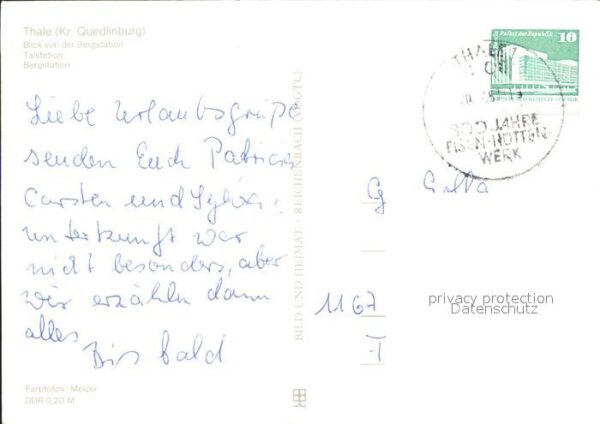 Thale (Kr. Quedlinburg)
Blick von der Bergstation
Talstation
Bergstation
Liebe Urlaubsgrüße
senden Euch Patricia,
Carsten und Sylvia.
Unterkunft war
nicht besonders, aber
wir erzählen dann
alles
Bis bald
Farbfotos: Melzer
DDR 0,20 M
BILD UND HEIMAT · REICHENBACH (VOGTL)
Palast der Republik 10
THALE 1
JAHRE
EISEN-HÜTTEN-
WERK
1167
privacy protection
Datenschutz